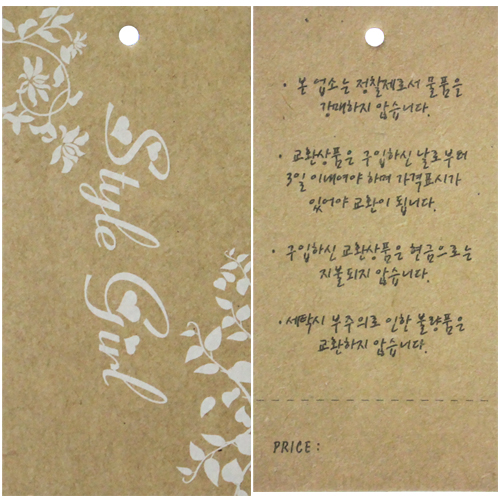 Style Girl
· 본 업소는 정찰제로서 물품을
강매하지 않습니다.
· 교환상품은 구입하신 날로부터
3일 이내여야 하며 가격표시가
있어야 교환이 됩니다.
· 구입하신 교환상품은 현금으로는
지불되지 않습니다.
· 세탁시 부주의로 인한 불량품은
교환하지 않습니다.
PRICE :